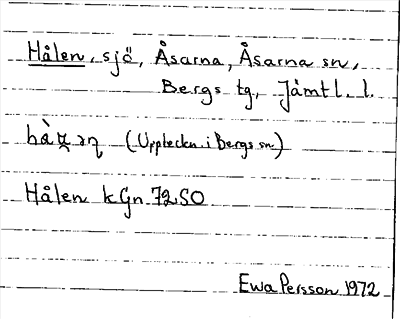 Hålen, sjö, Åsarna, Åsarna sn,
Bergs tg, Jämtl. l.
(Uppteckn. i Bergs sn)
Hålen kGn 72SO
Ewa Persson 1972